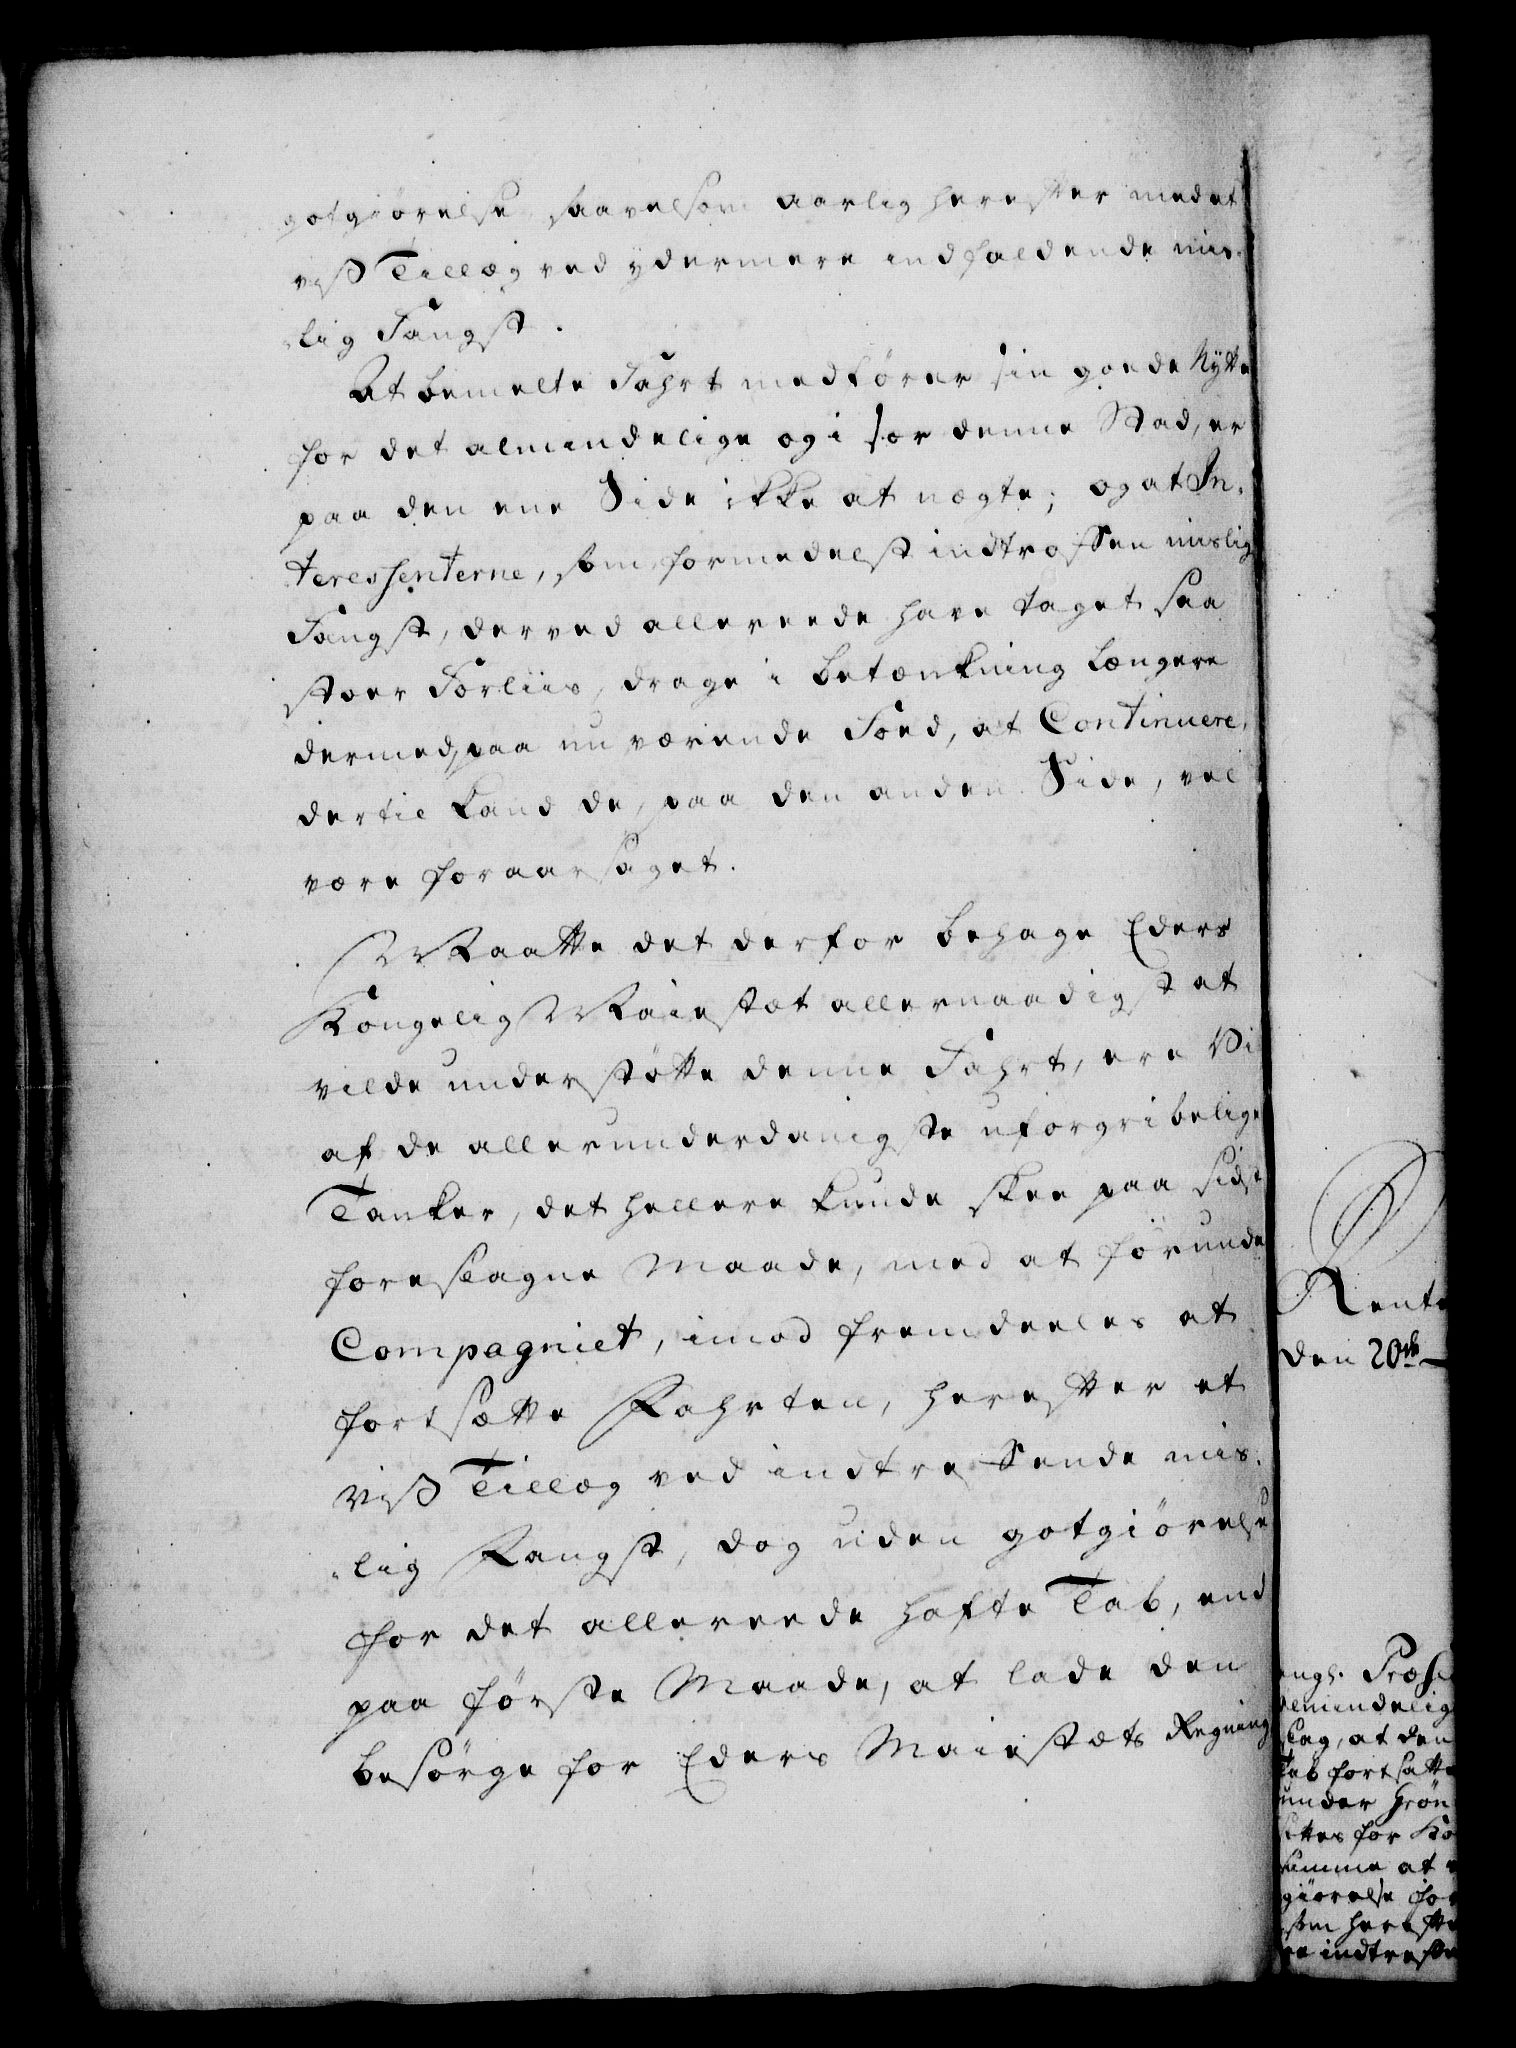 gotgiørelse, saavelsom aarlig herefter med et
vist Tillæg ved ydermere indfaldende mis-
lig Fangst.
At bemelte Fahrt medfører sin goede Nytte
for det almindelige og i sær denne Stad, er
paa den ene Side ikke at nægte; og at In-
teressenterne, som formedelst indtroffen mislig
Fangst, derved allereede have taget saa
stoer Forliis, drage i betænkning længere
dermed, paa nu værende Foed, at Continuere,
dertil kand de, paa den anden Side, vel
være foraarsaget.
Maatte det derfor behage Eders
Kongelig Maiestæt allernaadigst at
vilde understøtte denne Fahrt, ere Vi
af de allerunderdanigste uforgribelige
Tanker, det hellere kunde skee paa sidst
foreslagne Maade, med at forunde
Compagniet, imod fremdeeles at
fortsætte Fahrten, herefter et
vist Tillæg ved indtreffende mis-
lig Fangst, dog uden gotgiørelse
for det allereede hafte Tab, end
paa første Maade, at lade den
besørge for Eders Maiestæts Regning
Rente
den 20de
engl. Præsi
almindelig
slag, at den
Tab fortsatte
under Grøn
ittes for Ko
umme at
giørelse for
som herefte
re indtreffe